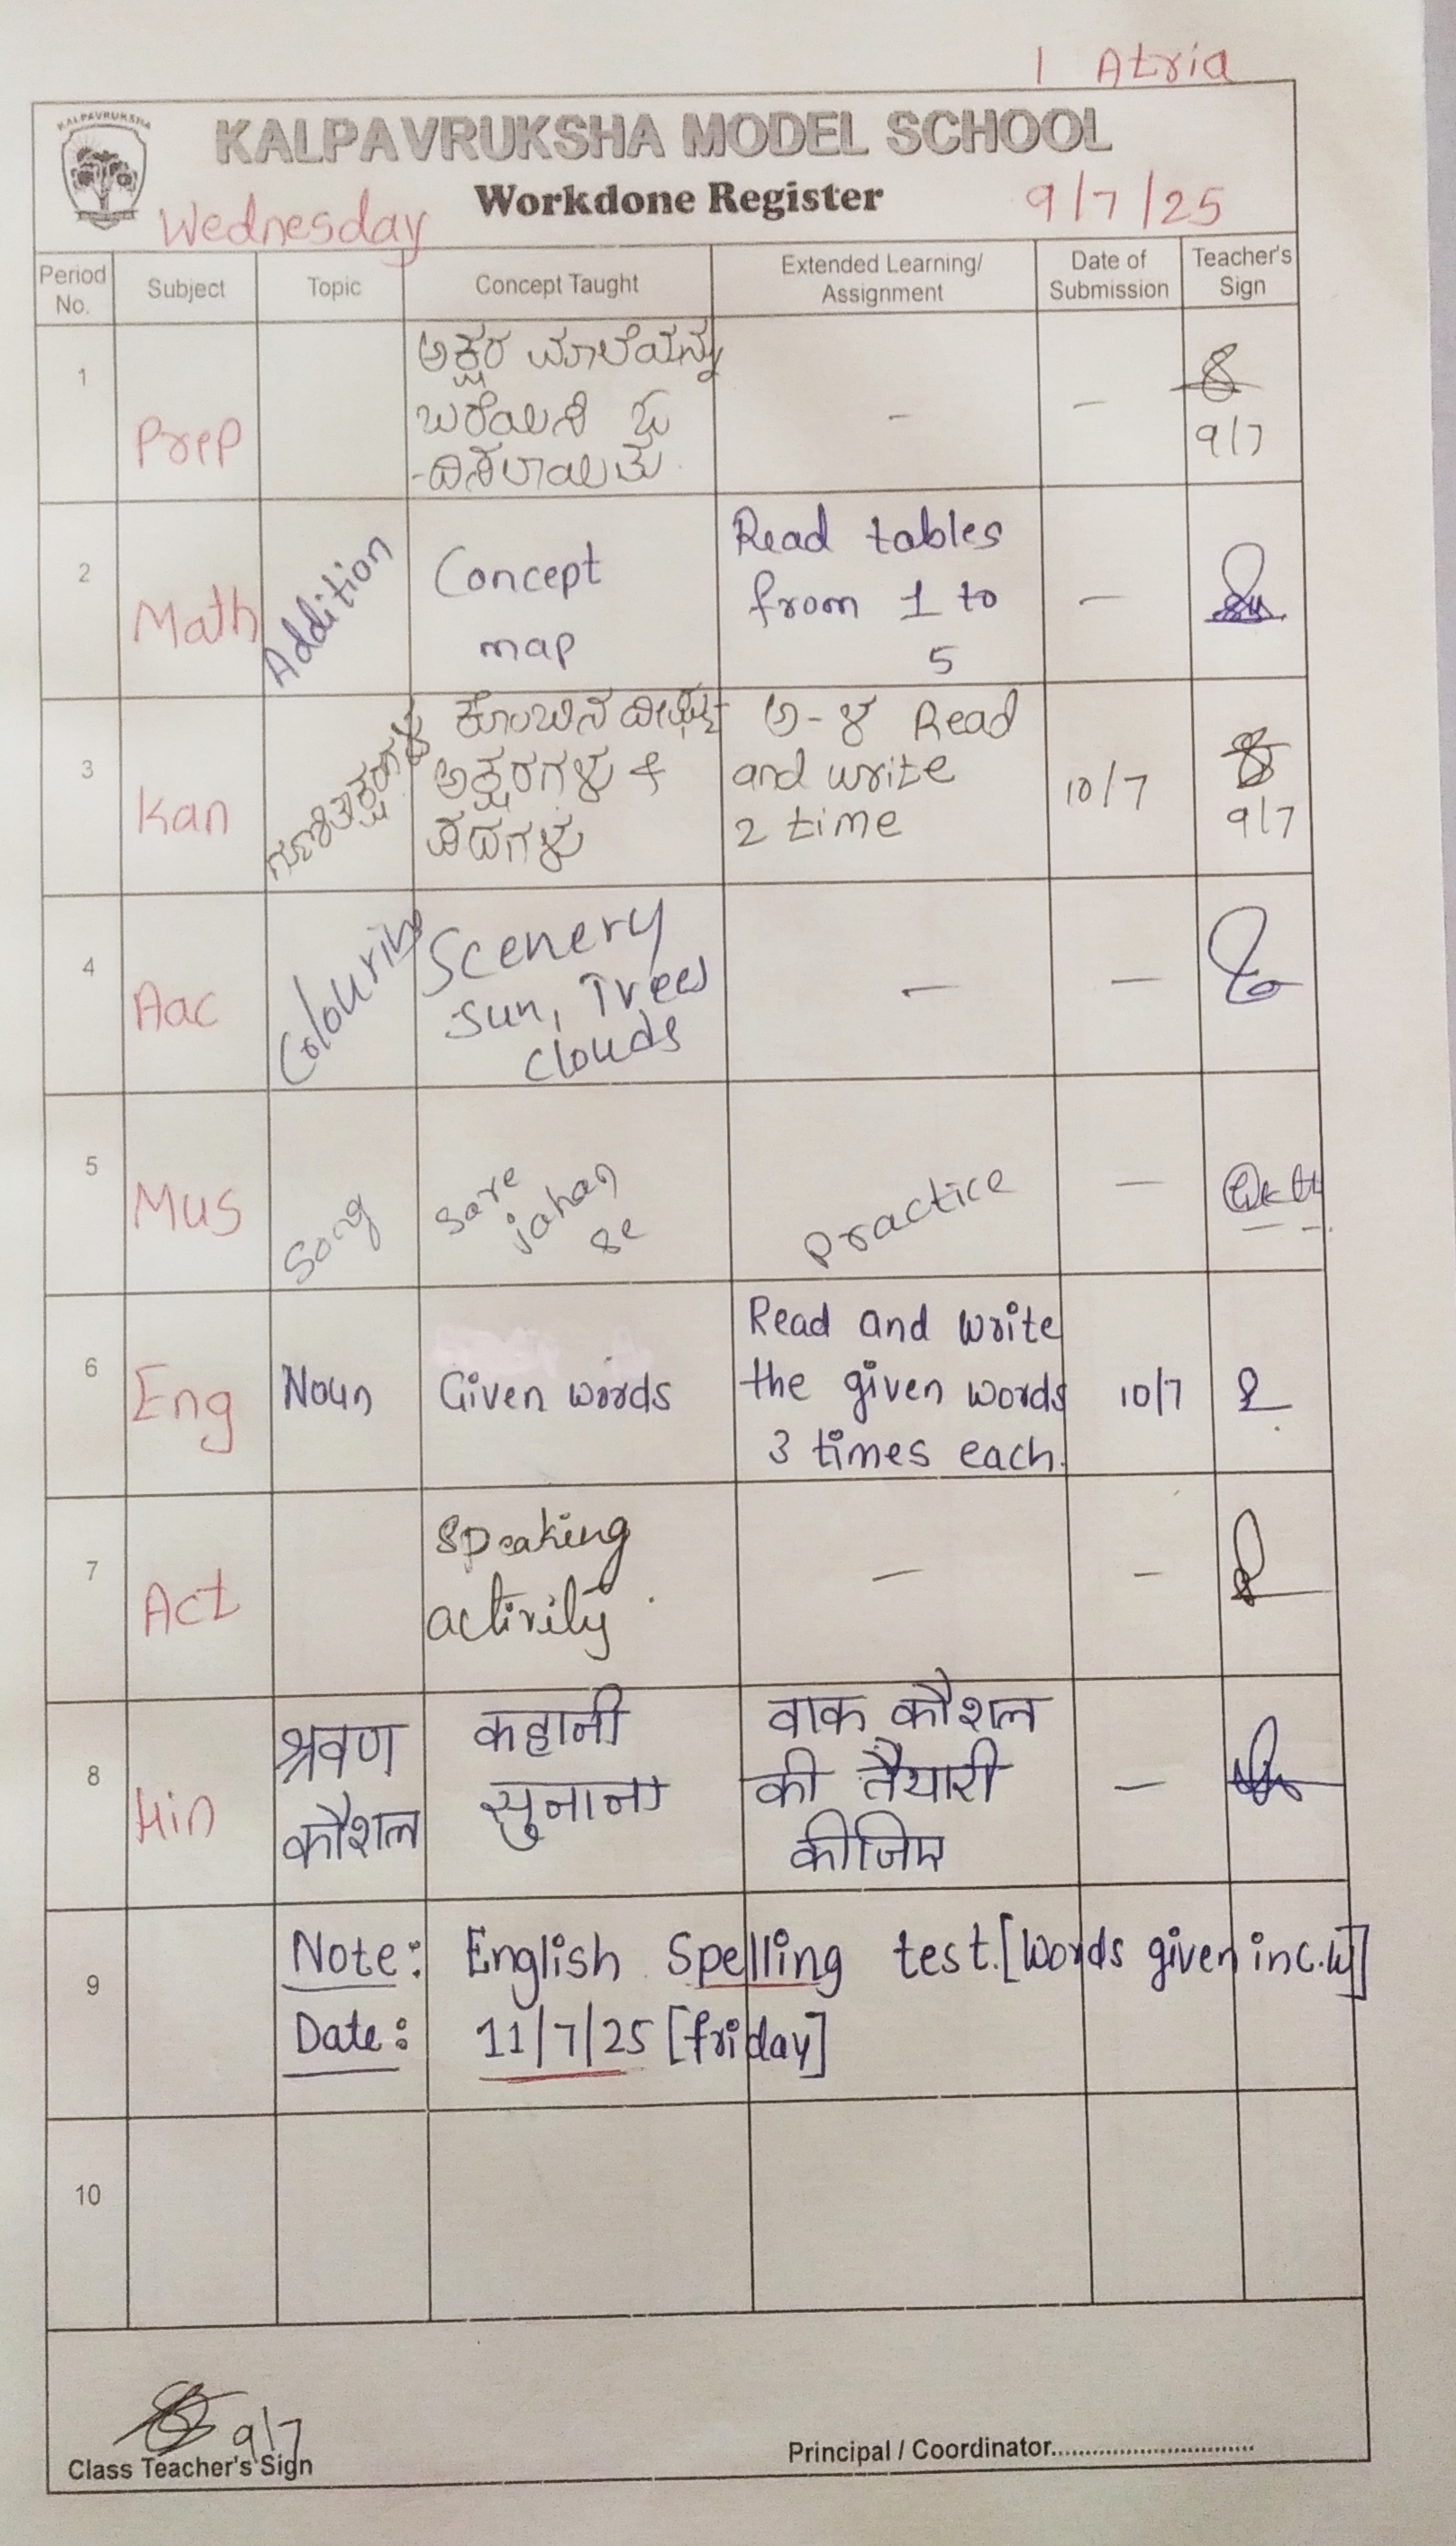 1 Atria
KALPAVRUKSHA
KALPAVRUKSHA MODEL SCHOOL
Wednesday Workdone Register 9/7/25
Period No. Subject Topic Concept Taught Extended Learning/ Assignment Date of Submission Teacher's Sign
1 Prep ಅಕ್ಷರ ಮಾಲೆಯನ್ನು
ಬರೆಯಿಸಿ
- - 9/7
2 Math Addition Concept
map
Read tables
from 1 to
5
-
3 Kan ಗುಣಿತಾಕ್ಷರಗಳು ಕೊಂಬಿನ ದೀರ್ಘ
ಅಕ್ಷರಗಳು &
ಪದಗಳು
ಅ-ಳ Read
and write
2 time
10/7 9/7
4 Aac Colouring Scenery
Sun, Trees
clouds
- -
5 Mus Song Sare
jahan
se
practice -
6 Eng Noun Given words
Read and write
the given words
3 times each.
10/7
7 Act Speaking
activity.
- -
8 Hin श्रवण
कौशल
कहानी
सुनाना
वाक कौशल
की तैयारी
कीजिए
-
9 Note: English Spelling test.[words given in c.w]
Date: 11/7/25 [friday]
10
9/7
Class Teacher's Sign Principal / Coordinator..............................